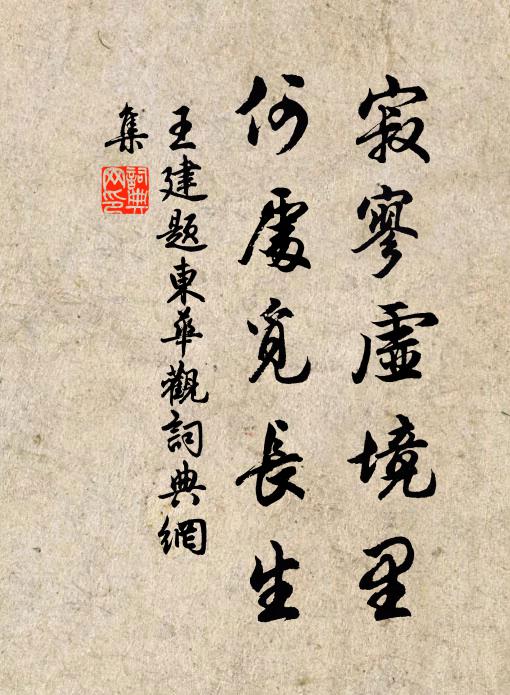 寂寥虛境里
何處覓長生
王建題東華觀詞典網
集
詞典网印